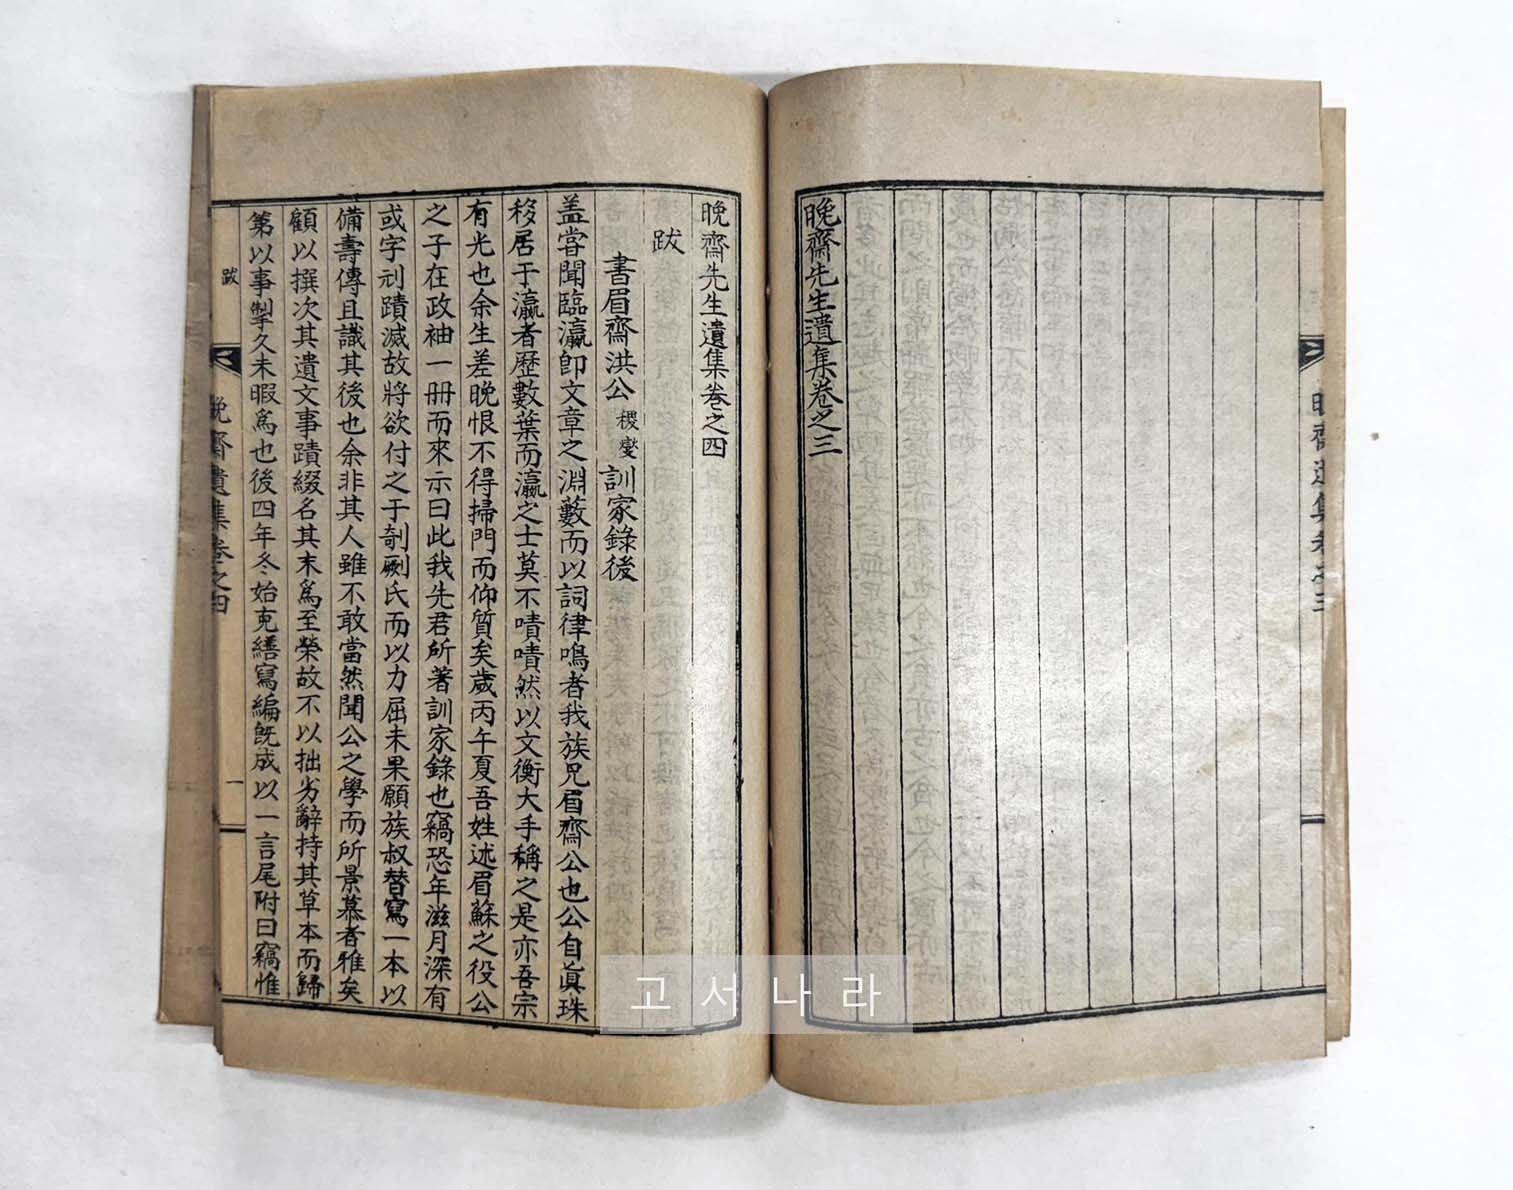 晩齋先生遺集卷之三
晩齋先生遺集卷之四
跋
書眉齋洪公稷燮訓家錄後
盖嘗聞臨瀛卽文章之淵藪而以詞律鳴者我族兄眉齋公也公自眞珠
移居于瀛者歷數葉而瀛之士莫不嘖嘖然以文衡大手稱之是亦吾宗
有光也余生差晩恨不得掃門而仰質矣歲丙午夏吾姓述眉蘇之役公
之子在政袖一冊而來示曰此我先君所著訓家錄也竊恐年滋月深有
或字刓蹟滅故將欲付之于剞劂氏而以力屈未果願族叔替寫一本以
備壽傳且識其後也余非其人雖不敢當然聞公之學而所景慕者雅矣
顧以撰次其遺文事蹟綴名其末爲至榮故不以拙劣辭持其草本而歸
第以事掣久未暇爲也後四年冬始克繕寫編旣成以一言尾附曰竊惟
跋
晩齋遺集卷之四
一
고서나라